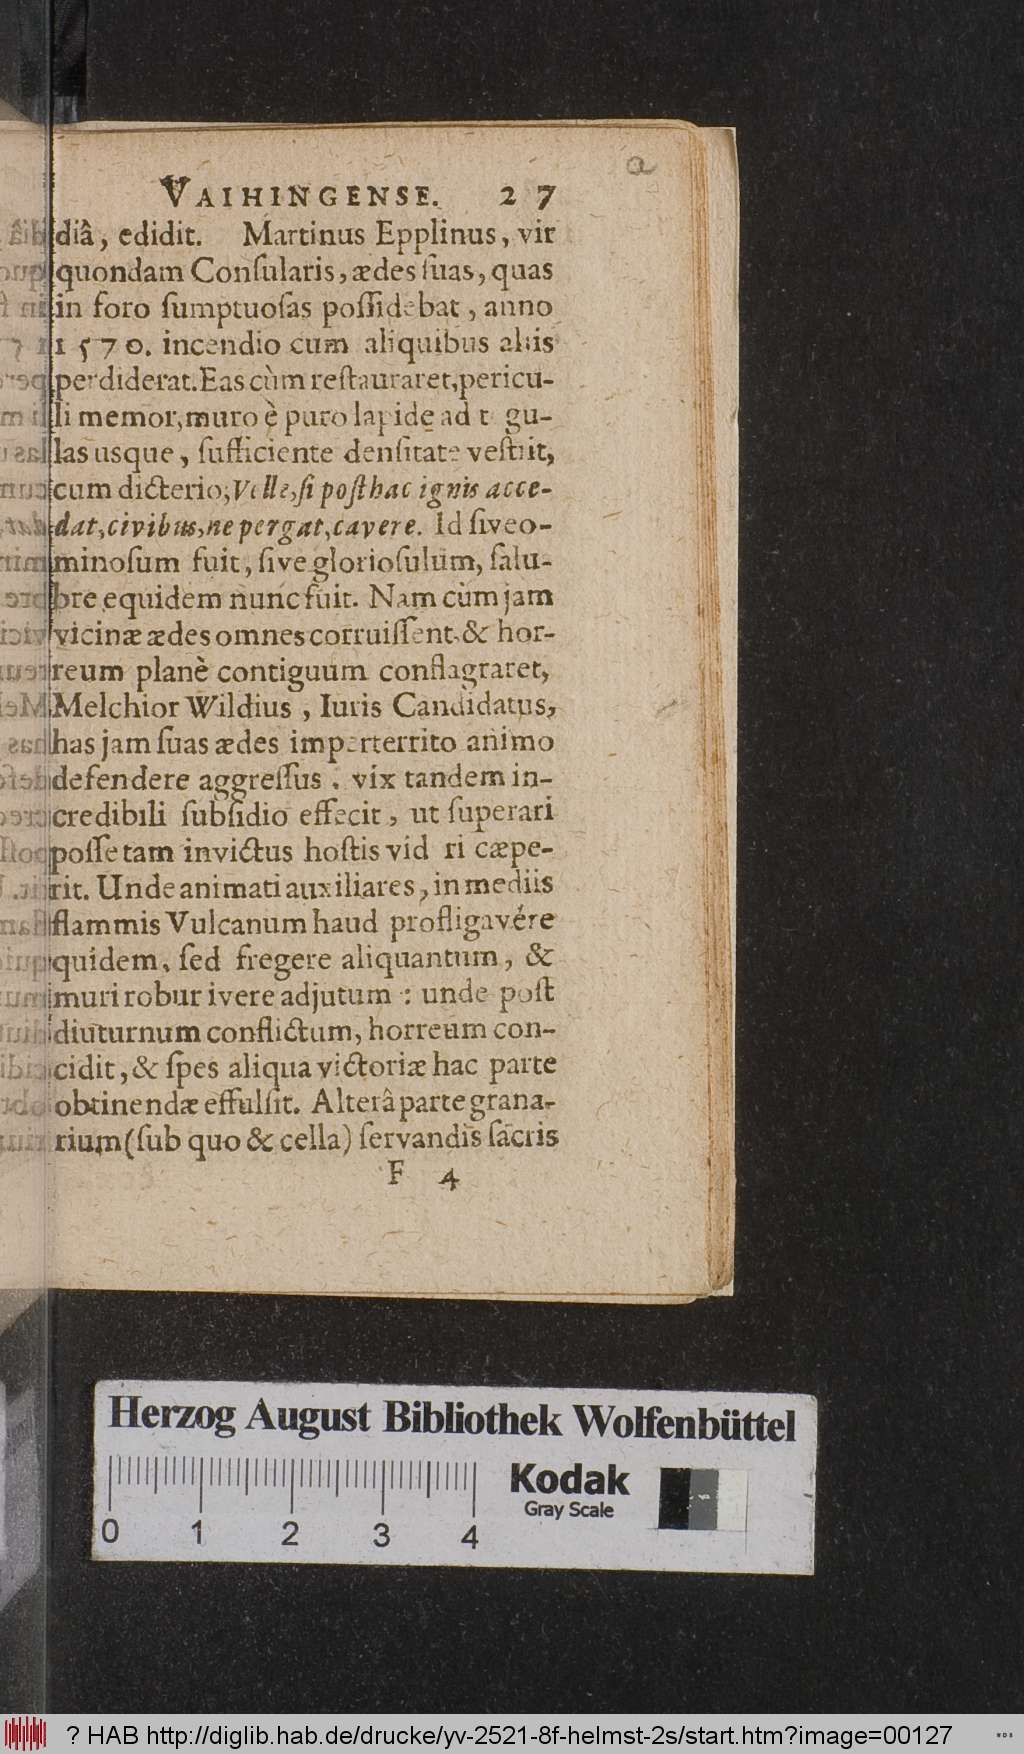 a
VAIHINGENSE. 27
diâ, edidit. Martinus Epplinus, vir
quondam Conſularis, ædes ſuas, quas
in foro ſumptuoſas poſſidebat, anno
1570. incendio cum aliquibus aliis
perdiderat. Eas cùm reſtauraret, pericu-
li memor, muro è puro lapide ad t gu-
las usque, ſufficiente denſitate veſtiit,
cum dicterio; Velle, ſi poſthac ignis acce-
dat, civibus, ne pergat, cavere. Id ſive o-
minoſum fuit, ſive glorioſulum, ſalu-
bre equidem nunc fuit. Nam cùm jam
vicinæ ædes omnes corruiſſent, & hor-
reum planè contiguum conflagraret,
Melchior Wildius, Iuris Candidatus,
has jam ſuas ædes imperterrito animo
defendere aggreſſus, vix tandem in-
credibili ſubſidio effecit, ut ſuperari
poſſe tam invictus hoſtis vid ri cæpe-
rit. Unde animati auxiliares, in mediis
flammis Vulcanum haud profligavére
quidem, ſed fregere aliquantum, &
muri robur ivere adjutum: unde poſt
diuturnum conflictum, horreum con-
cidit, & ſpes aliqua victoriæ hac parte
obtinendæ effulſit. Alterâ parte grana-
rium (ſub quo & cella) ſervandis ſacris
F 4
Herzog August Bibliothek Wolfenbüttel
Kodak
Gray Scale
0 1 2 3 4
? HAB http://diglib.hab.de/drucke/yv-2521-8f-helmst-2s/start.htm?image=00127